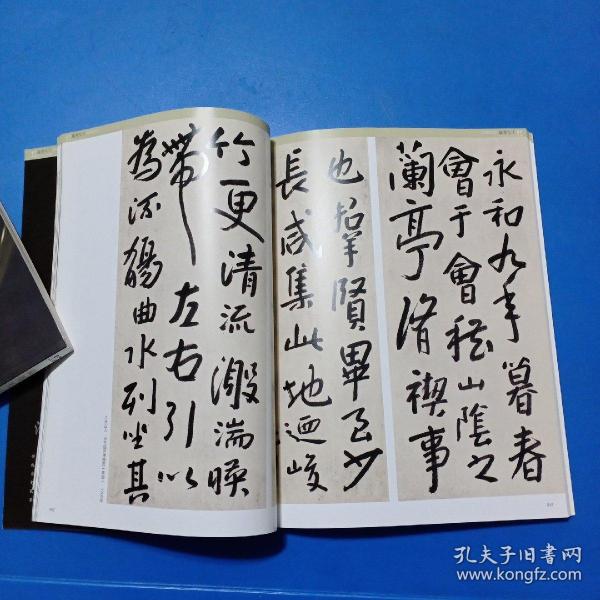 永和九年暮春
會于會稽山陰之
蘭亭脩禊事
也羣賢畢至少
長咸集此地迺峻
竹更清流激湍暎
帶左右引以
為流觴曲水列坐其
孔夫子旧书网
www.kongfz.com